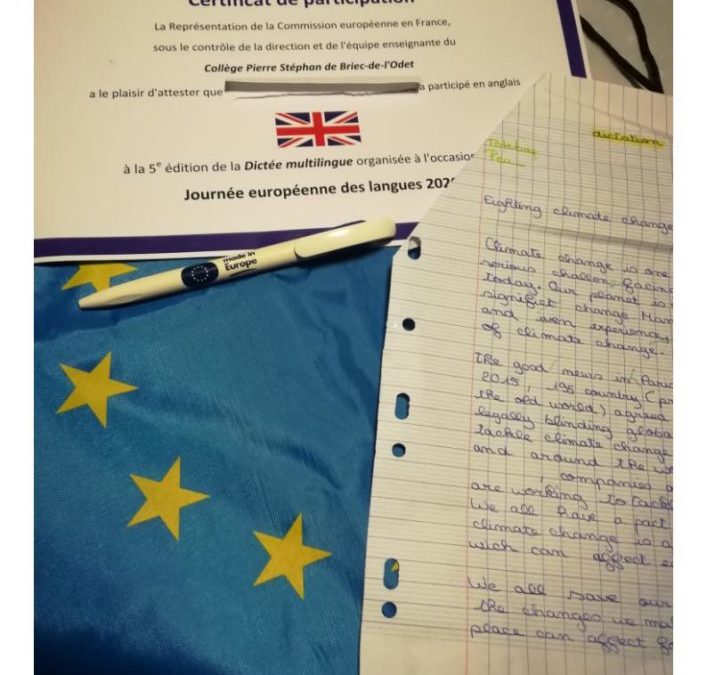 Certificat de participation
La Représentation de la Commission européenne en France,
sous le contrôle de la direction et de l'équipe enseignante du
Collège Pierre Stéphan de Briec-de-l'Odet
a le plaisir d'attester que a participé en anglais
à la 5e édition de la Dictée multilingue organisée à l'occasion
Journée européenne des langues 202
made in
Europe
dictation
Fighting climate change
Climate change is are
serious challen facin
today. Our planet is
signifiet change Man
and even experienc
of climate change.
The good news in Paris
2015, 195 country (pr
the of world) agree
legally blinding globa
tackle climate change
and around the wo
, companies a
are working to tackl
We all have a part
climate change is a
wich can affect e
We all have our
the changes we ma
place can affect